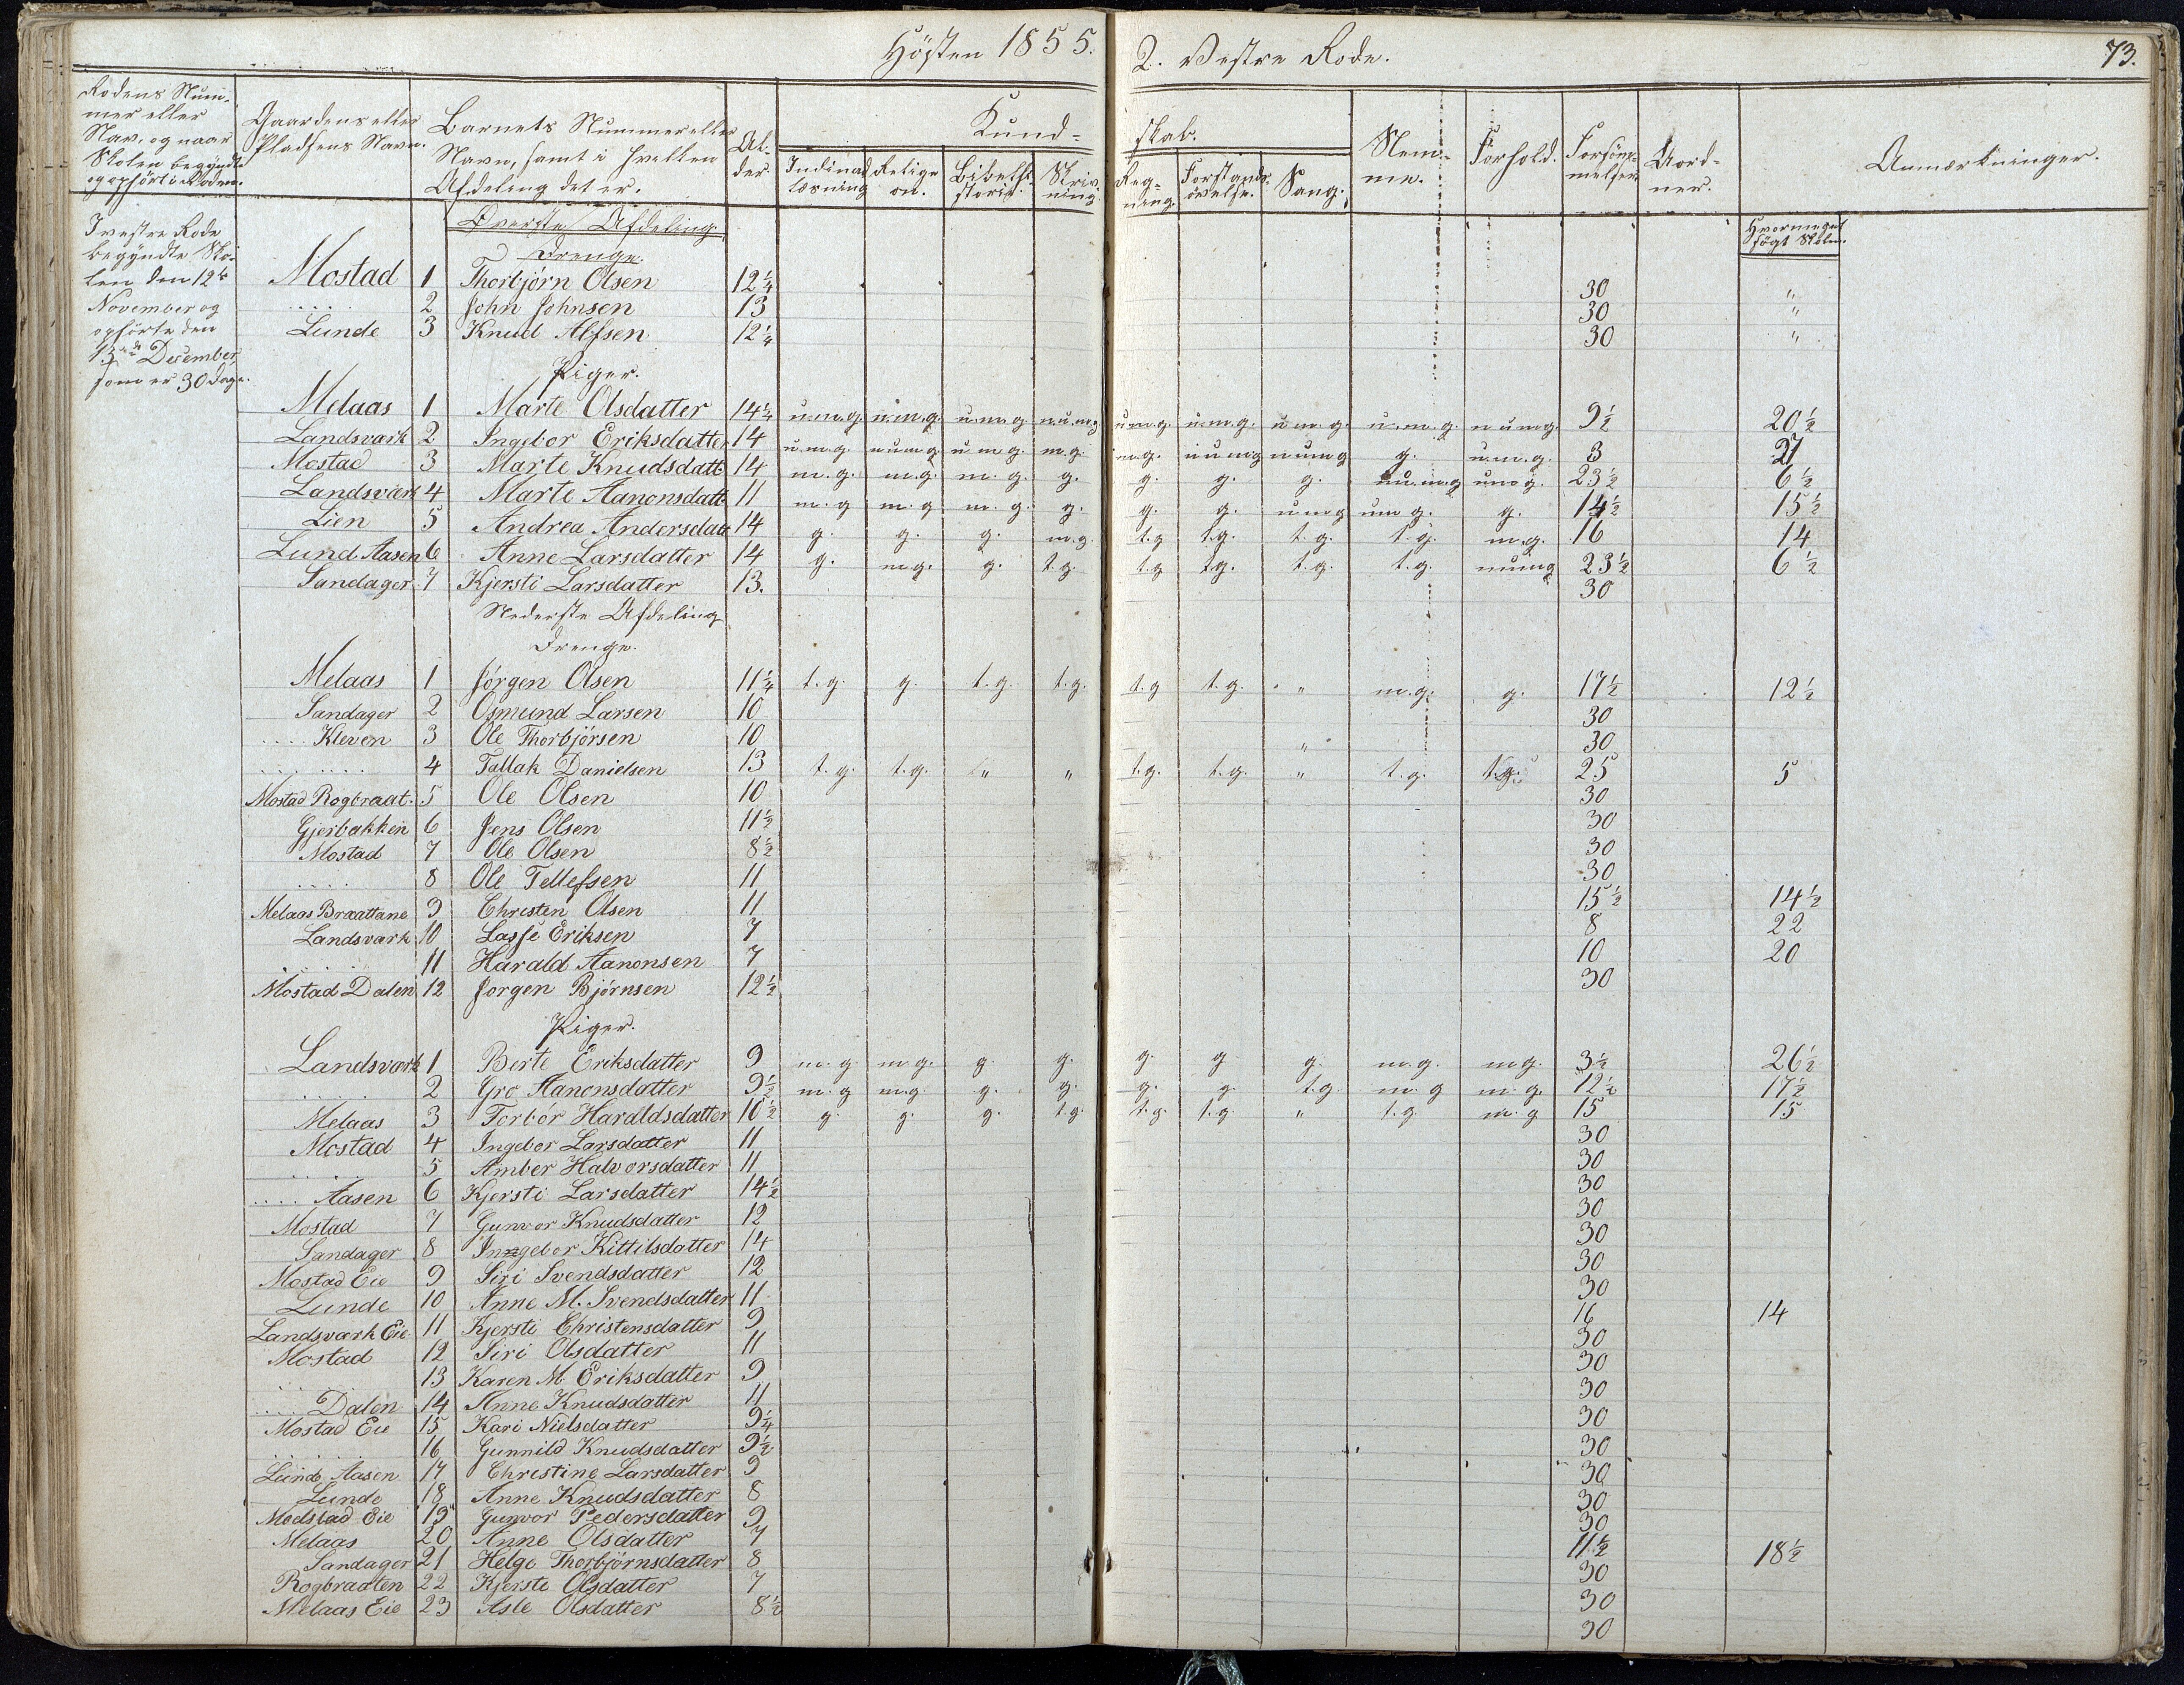 Hösten 1855. 2. Vestre Rode. 73.
Rodens Num-
mer eller
Nav. og naar
Skolen begyndte
og ophört i Roden.
Gaardens eller
Pladsens Navn.
Barnets Nummer eller
Navn, samt i hvilken
Afdeling det er.
Al-
der.
Kund-
skab.
Indenad
læsning
Religi-
on.
Bibelhi-
storie.
Skriv-
ning.
Reg-
ning.
Forstands-
övelse.
Sang.
Nem-
me.
Forhold.
Forsöm-
melser.
Uord-
ner.
Anmærkninger.
Hvormeget
sögt Skolen.
I vestre Rode
begyndte Sko-
len den 12te
November og
ophörte den
13de December,
som er 30 Dage.
Överste Afdeling
Drenge.
Mostad 1 Thorbjörn Olsen 12 1/4 30 "
.... 2 John Johnsen 13 30 "
Lunde 3 Knud Alfsen 12 1/4 30 "
Piger.
Melaas 1 Marte Olsdatter 14 1/4 u.m.g. u.m.g. u.m.g. n.u.m.g u.m.g. u.m.g. u.m.g. u.m.g. n u m g. 9 1/2 20 1/2
Landsvark 2 Ingebor Eriksdatter 14 u.m.g. n u m g u m g. m.g. m.g. n u m g n u m g g. u.m.g. 3 27
Mostad 3 Marte Knudsdatt 14 m.g. m.g. m.g. g. g. g. g. n u.m.g u m g. 23 1/2 6 1/2
Landsvark 4 Marte Aanonsdatt 11 m.g m.g m.g. g. g. g. u m g u m g. g. 14 1/2 15 1/2
Lien 5 Andrea Andersdatt 14 g. g. g. m.g. t.g t.g. t.g. t.g. m.g. 16 14
Lund Aasen 6 Anne Larsdatter 14 g. m.g. g. t.g. t.g t.g. t.g. t.g. n u m g 23 1/2 6 1/2
Sandager 7 Kjersti Larsdatter 13. 30
Nederste Afdeling
Drenge.
Melaas 1 Jörgen Olsen 11 1/4 t.g. g. t.g. t.g. t.g t.g. " m.g. g. 17 1/2 12 1/2
Sandager 2 Osmund Larsen 10 30
.... Kleven 3 Ole Thorbjörsen 10 " 30
........ 4 Tallak Danielsen 13 t.g. t.g. " " t.g. t.g. " t.g. t.g. 25 5
Mostad Rogbraat. 5 Ole Olsen 10 30
Gjerbakken 6 Jens Olsen 11 1/2 30
Mostad 7 Ole Olsen 8 1/2 30
.... 8 Ole Tellefsen 11 30
Melaas Braattane 9 Christen Olsen 11 15 1/2 14 1/2
Landsvark 10 Lasse Eriksen 7 8 22
..... 11 Harald Aanonsen 7 10 20
Mostad Dalen 12 Jorgen Björnsen 12 1/2 30
Piger.
Landsvark 1 Berte Eriksdatter 9 m.g m.g. g g. g. g g. m.g. m.g. 3 1/2 26 1/2
..... 2 Gro Aanonsdatter 9 1/2 m.g m.g g. g. g. g. t.g. m.g m.g. 12 1/2 17 1/2
Melaas 3 Torbör Haraldsdatter 10 1/2 g g. g. t.g. t.g. t.g. " t.g m.g 15 15
Mostad 4 Ingebor Larsdatter 11 30
.... 5 Amber Halvorsdatter 11 30
.... Aasen 6 Kjersti Larsdatter 14 1/2 30
Mostad 7 Gunvor Knudsdatter 12 30
Sandager 8 Inngebor Kittilsdatter 14 30
Mostad Eie 9 Siri Svendsdatter 12 30
Lunde 10 Anne M. Svendsdatter 11 30
Landsvark Eie 11 Kjersti Christensdatter 9 16 14
Mostad 12 Siri Olsdatter 11 30
..... 13 Karen M Eriksdatter 9 30
.... Dalen 14 Anne Knudsdatter 11 30
Mostad Eie 15 Kari Nielsdatter 9 1/4 30
..... 16 Gunnild Knudsdatter 9 1/2 30
Lunde Aasen 17 Christine Larsdatter 9 30
Lunde 18 Anne Knudsdatter 8 30
Modstad Eie 19 Gunvor Pedersdatter 9 30
Melaas 20 Anne Olsdatter 7 11 1/2 18 1/2
Sandager 21 Helge Thorbjörnsdatter 8 30
Rogbraaten 22 Kjerste Olsdatter 7 30
Melaas Eie 23 Asle Olsdatter 8 1/2 30